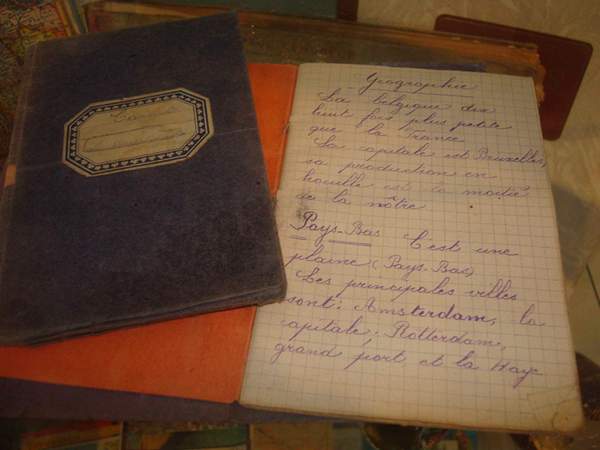 Géographie
La belgique dix
huit fois plus petite
que la France
La capitale est Bruxelles,
sa production en
houille est la moitié
de la nôtre
Pays-Bas C'est une
plaine (Pays-Bas)
Les principales villes
sont: Amsterdam, la
capitale. Rotterdam,
grand port et la Haye